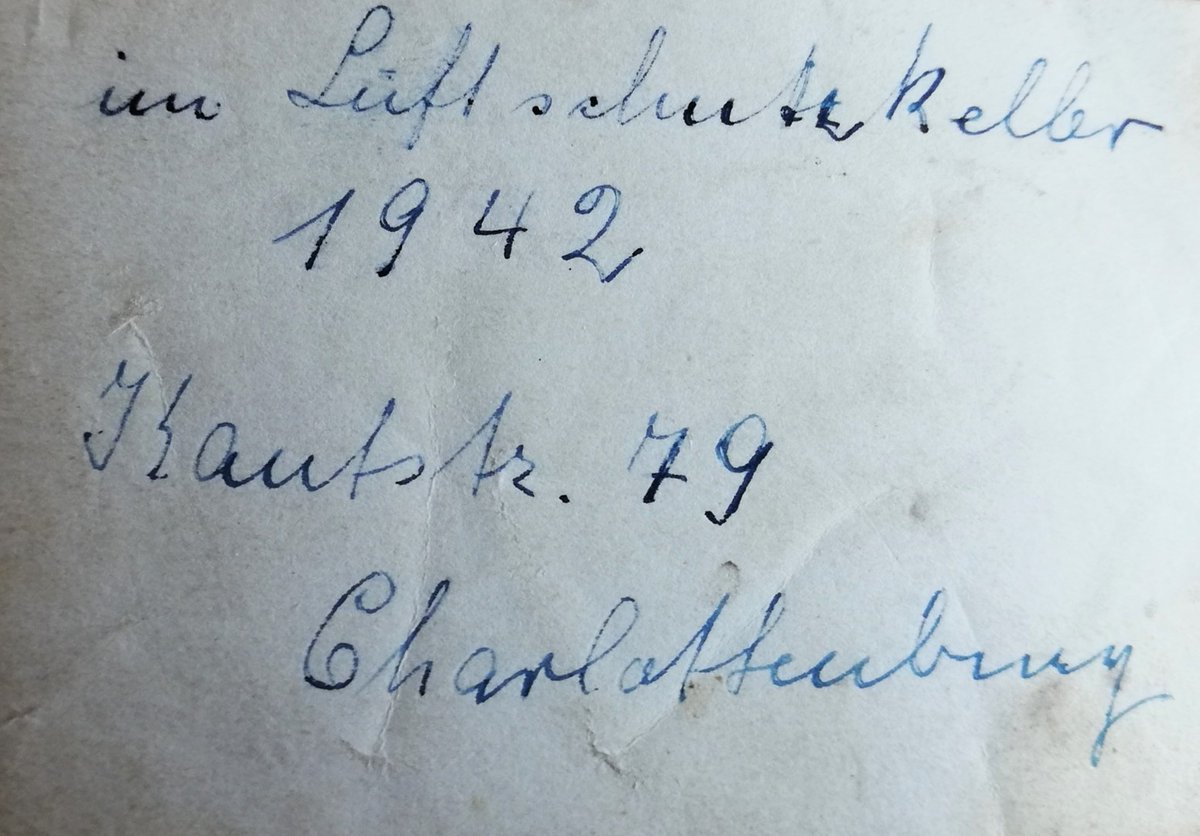 im Luftschutzkeller
1942
Kantstr. 79
Charlottenburg